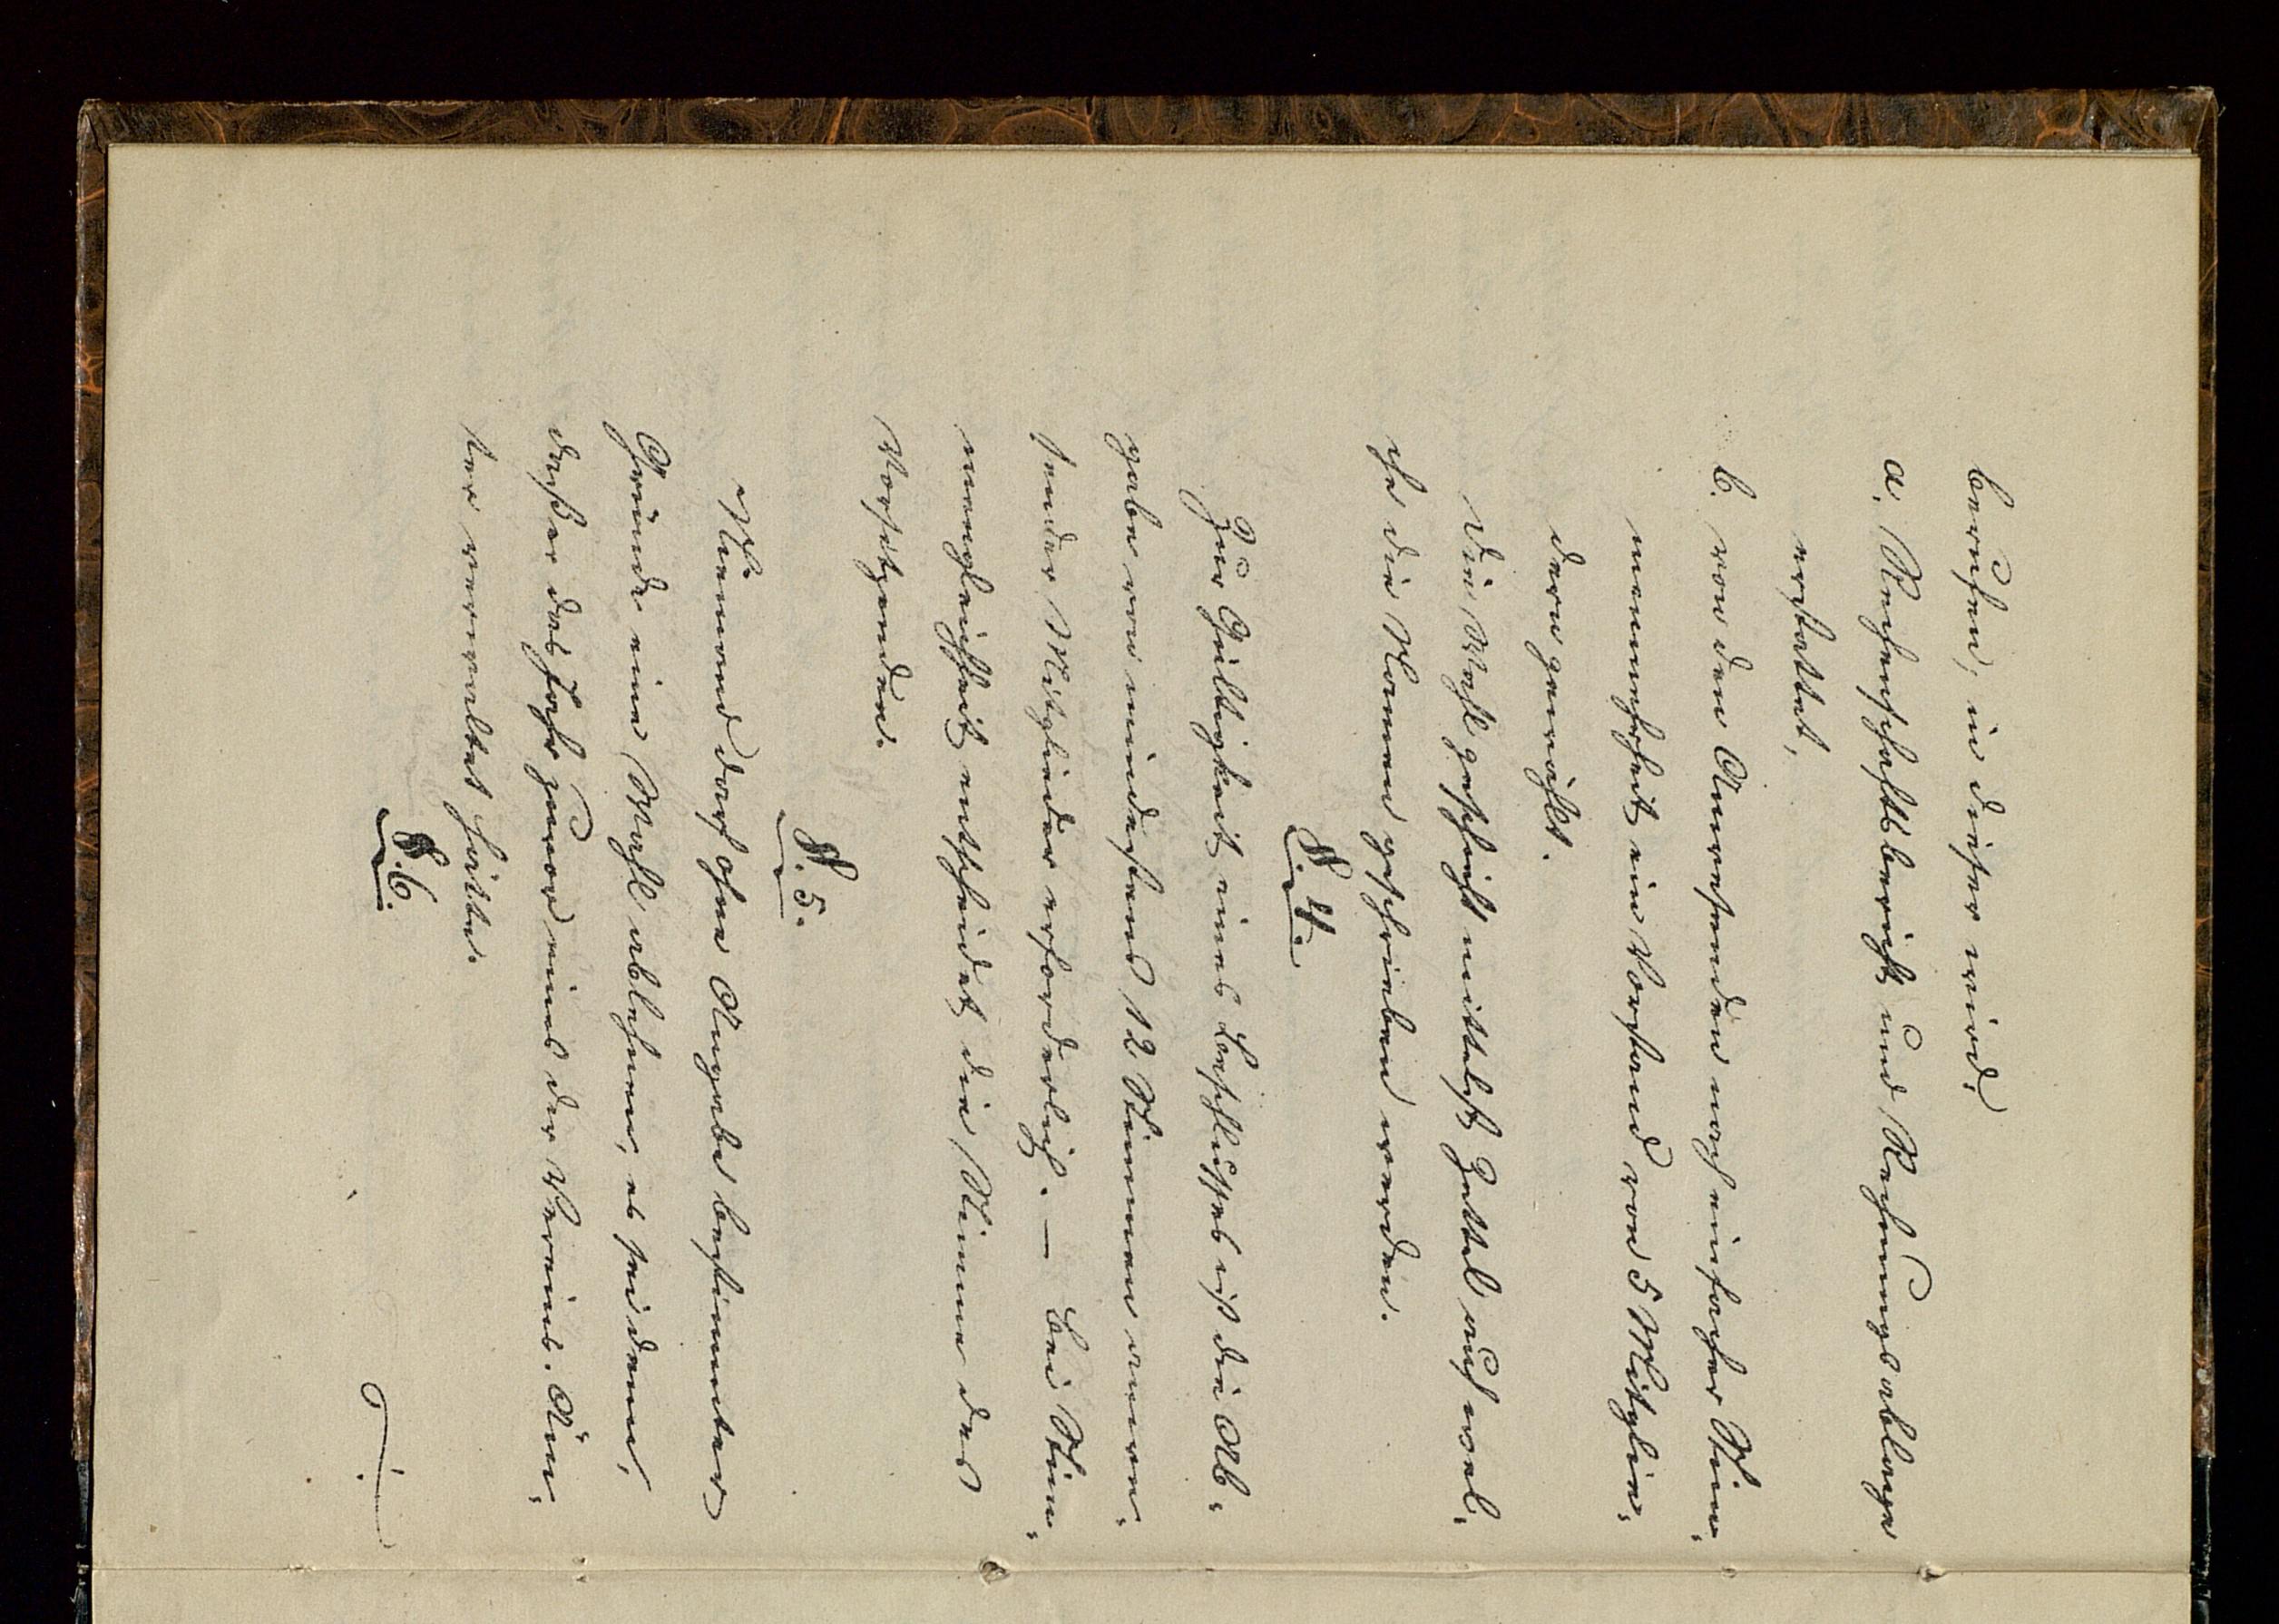 berufen, in dieser wird,
a. Rechenschaftsbericht und Rechnungsablage
erstattet,
b. von den Anwesenden nach einfacher Stim-
menmehrheit ein Vorstand von 5 Mitglie-
dern gewählt.
Die Wahl geschieht mittelst Zettel auf wel-
che die Namen geschrieben werden.
§. 4.
Zur Gültigkeit eines Beschlusses ist die Ab-
gabe von mindestens 12 Stimmen anwe-
sender Mitglieder erforderlich. — Bei Stim-
mengleichheit entscheidet die Stimme des
Vorsitzenden.
§. 5.
Niemand darf ohne Angabe bestimmter
Gründe eine Wahl ablehnen, es sei denn,
daß er das Jahr zuvor eines der Vereins-Äm-
ter verwaltet hätte.
§. 6.